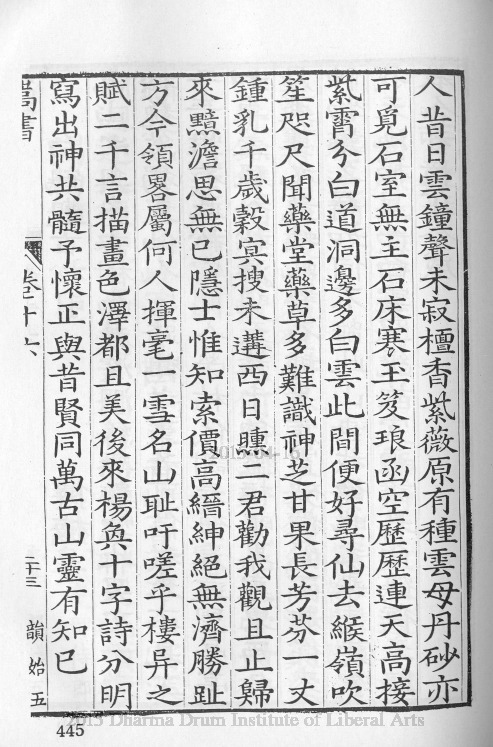 人昔日雲鐘聲未寂檀香紫薇原有種雲母丹砂亦
可覓石室無主石床寒玉笈琅函空歷歷連天高接
紫霄兮白道洞邊多白雲此間便好尋仙去緱嶺吹
笙咫尺聞藥堂藥草多難識神芝甘果長芳芬一丈
鍾乳千歲榖㝠搜未遘西日曛二君勸我觀且止歸
來黯澹思無已隱士惟知索價高縉紳絕無濟勝趾
方今領畧屬何人揮毫一雪名山耻吁嗟乎樓异之
賦二千言描畫色澤都且美後來楊奐十字詩分明
寫出神共髓予懷正與昔賢同萬古山靈有知已
嵩書
卷十六
二十三
韻始五
445
2015 Dharma Drum Institute of Liberal Arts